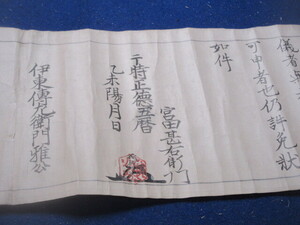 儀者
可申者也仍許免状
如件
宮田甚右衛門
于時正徳五暦
乙未陽月日
伊東傳左衛門雅公